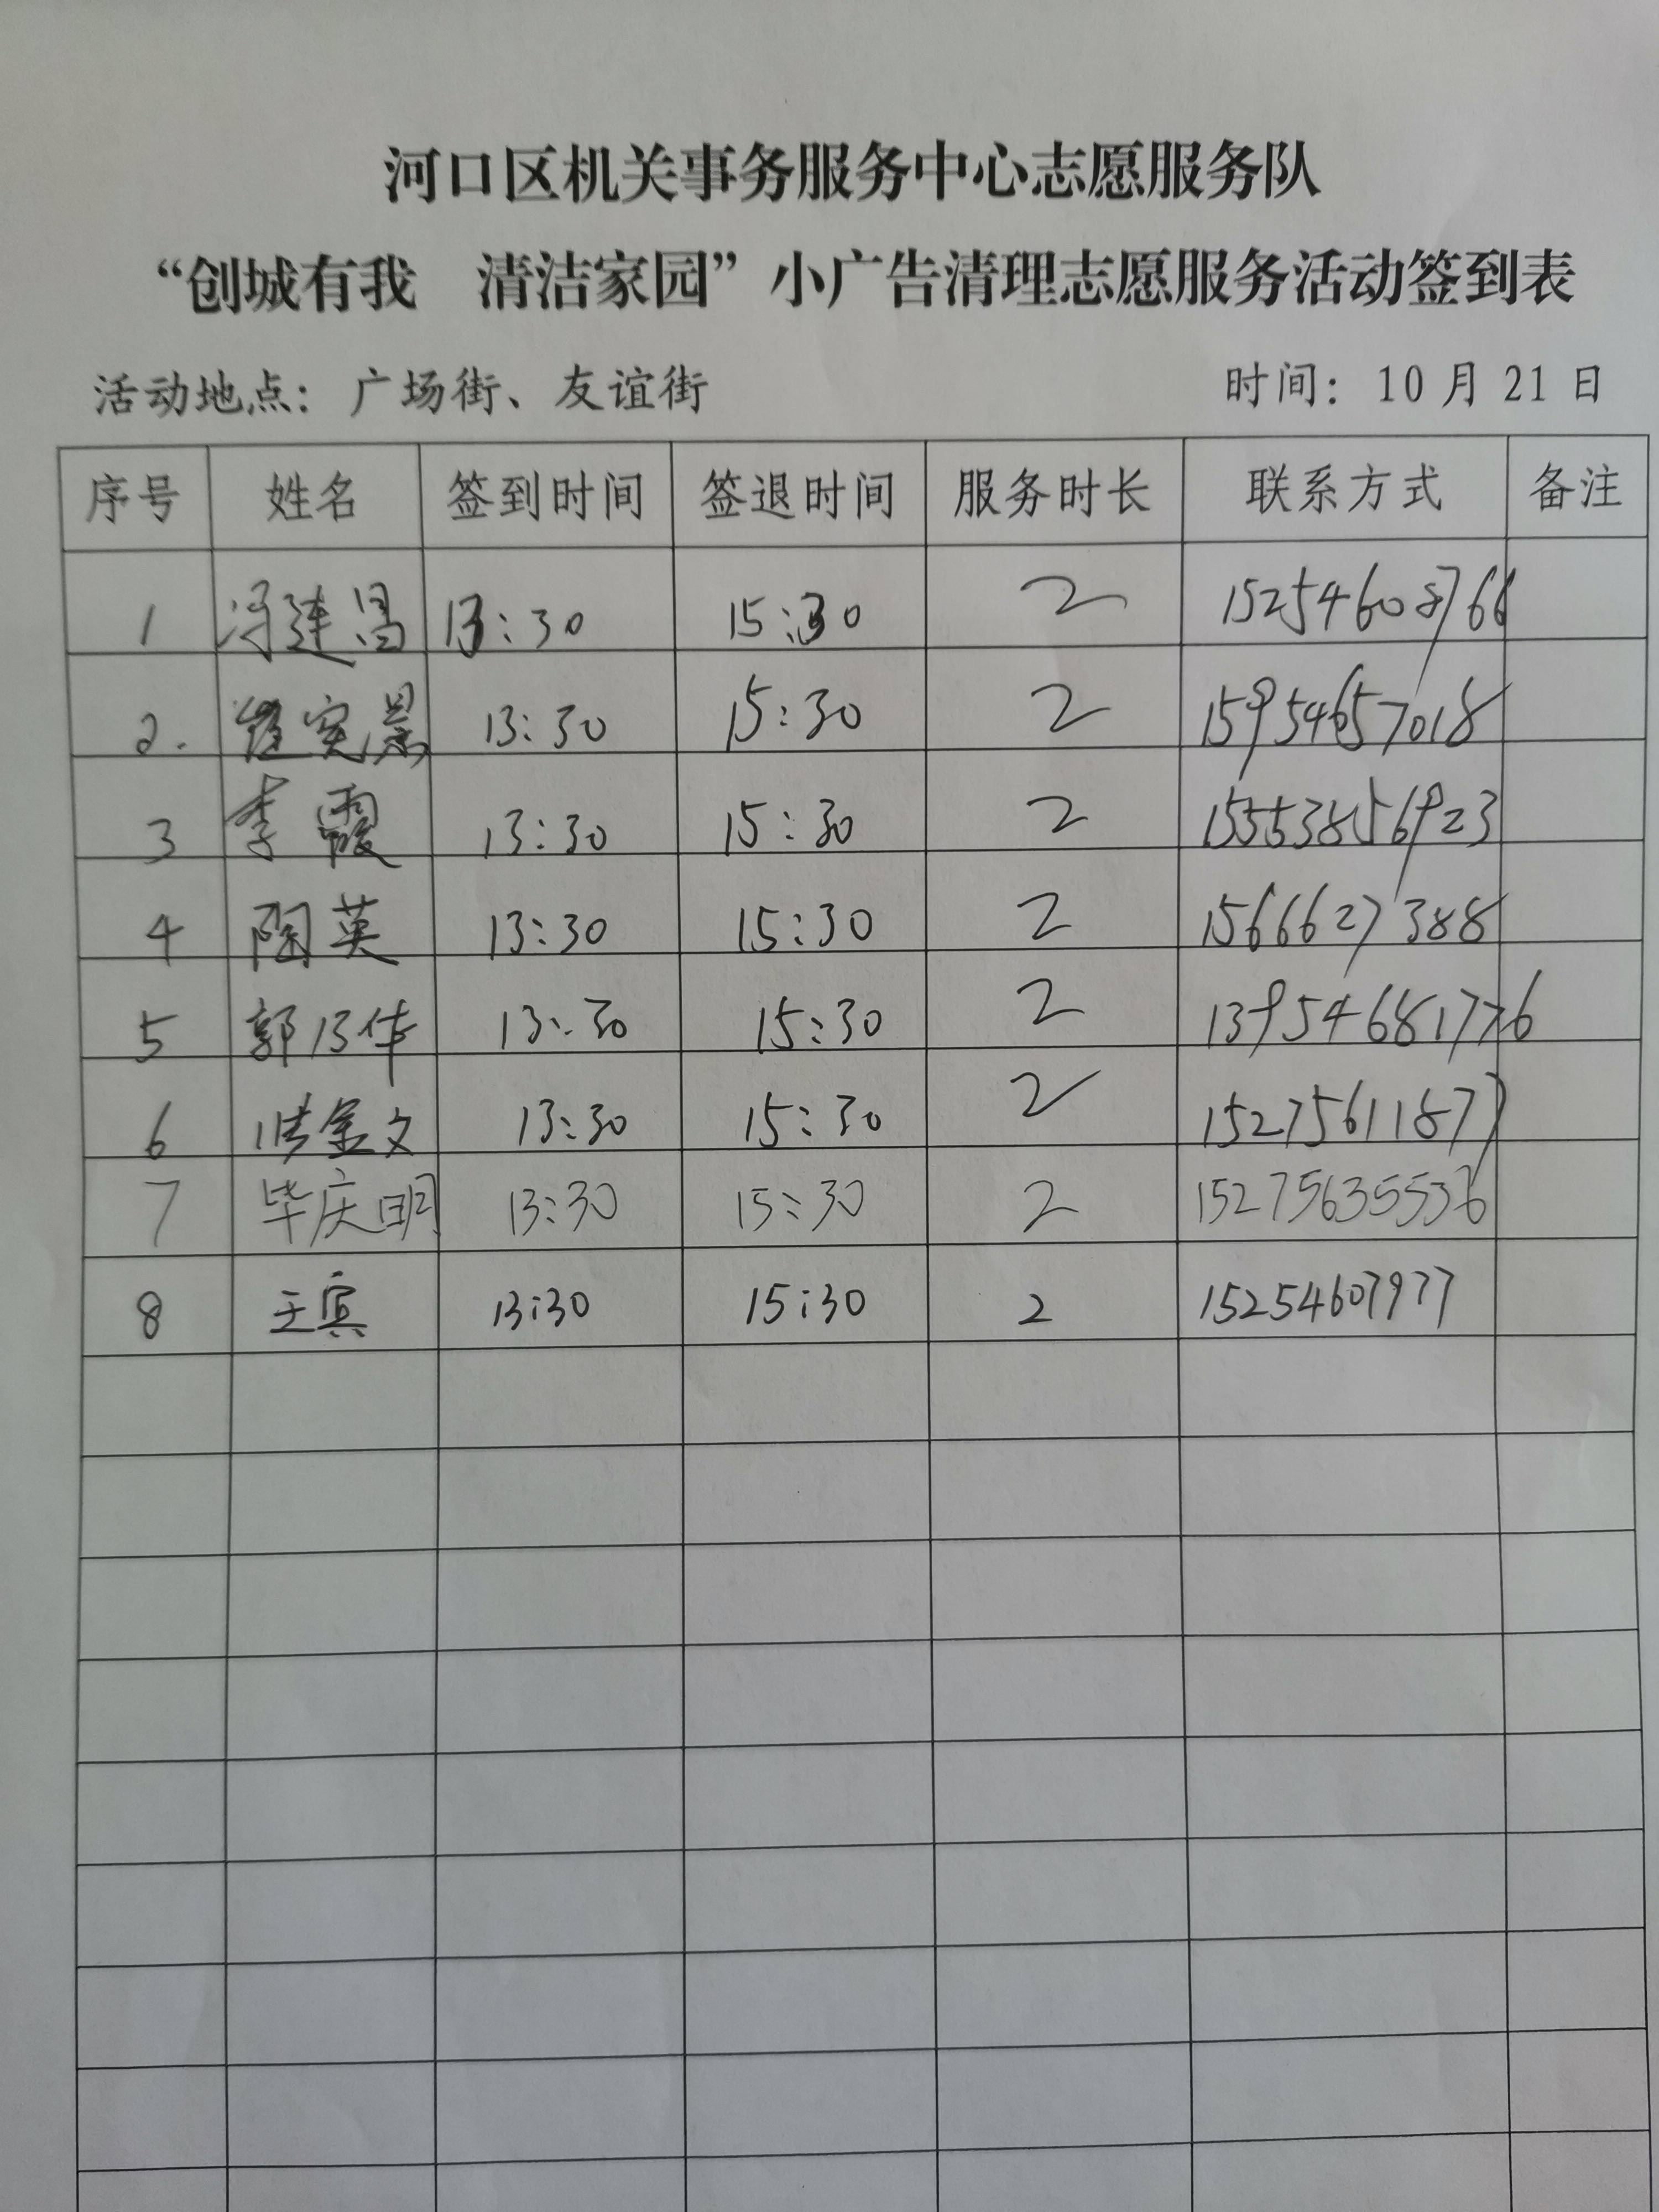 河口区机关事务服务中心志愿服务队
“创城有我 清洁家园”小广告清理志愿服务活动签到表
活动地点：广场街、友谊街 时间：10月21日
序号 姓名 签到时间 签退时间 服务时长 联系方式 备注
1 冯连昌 13:30 15:30 2 15254608766
2. 13:30 15:30 2 15954657018
3 李霞 13:30 15:30 2 15553856923
4 陶英 13:30 15:30 2 1566627388
5 郭乃华 13:30 15:30 2 13954681776
6 洪金文 13:30 15:30 2 15275611877
7 毕庆明 13:30 15:30 2 15275635536
8 王宾 13:30 15:30 2 15254607977